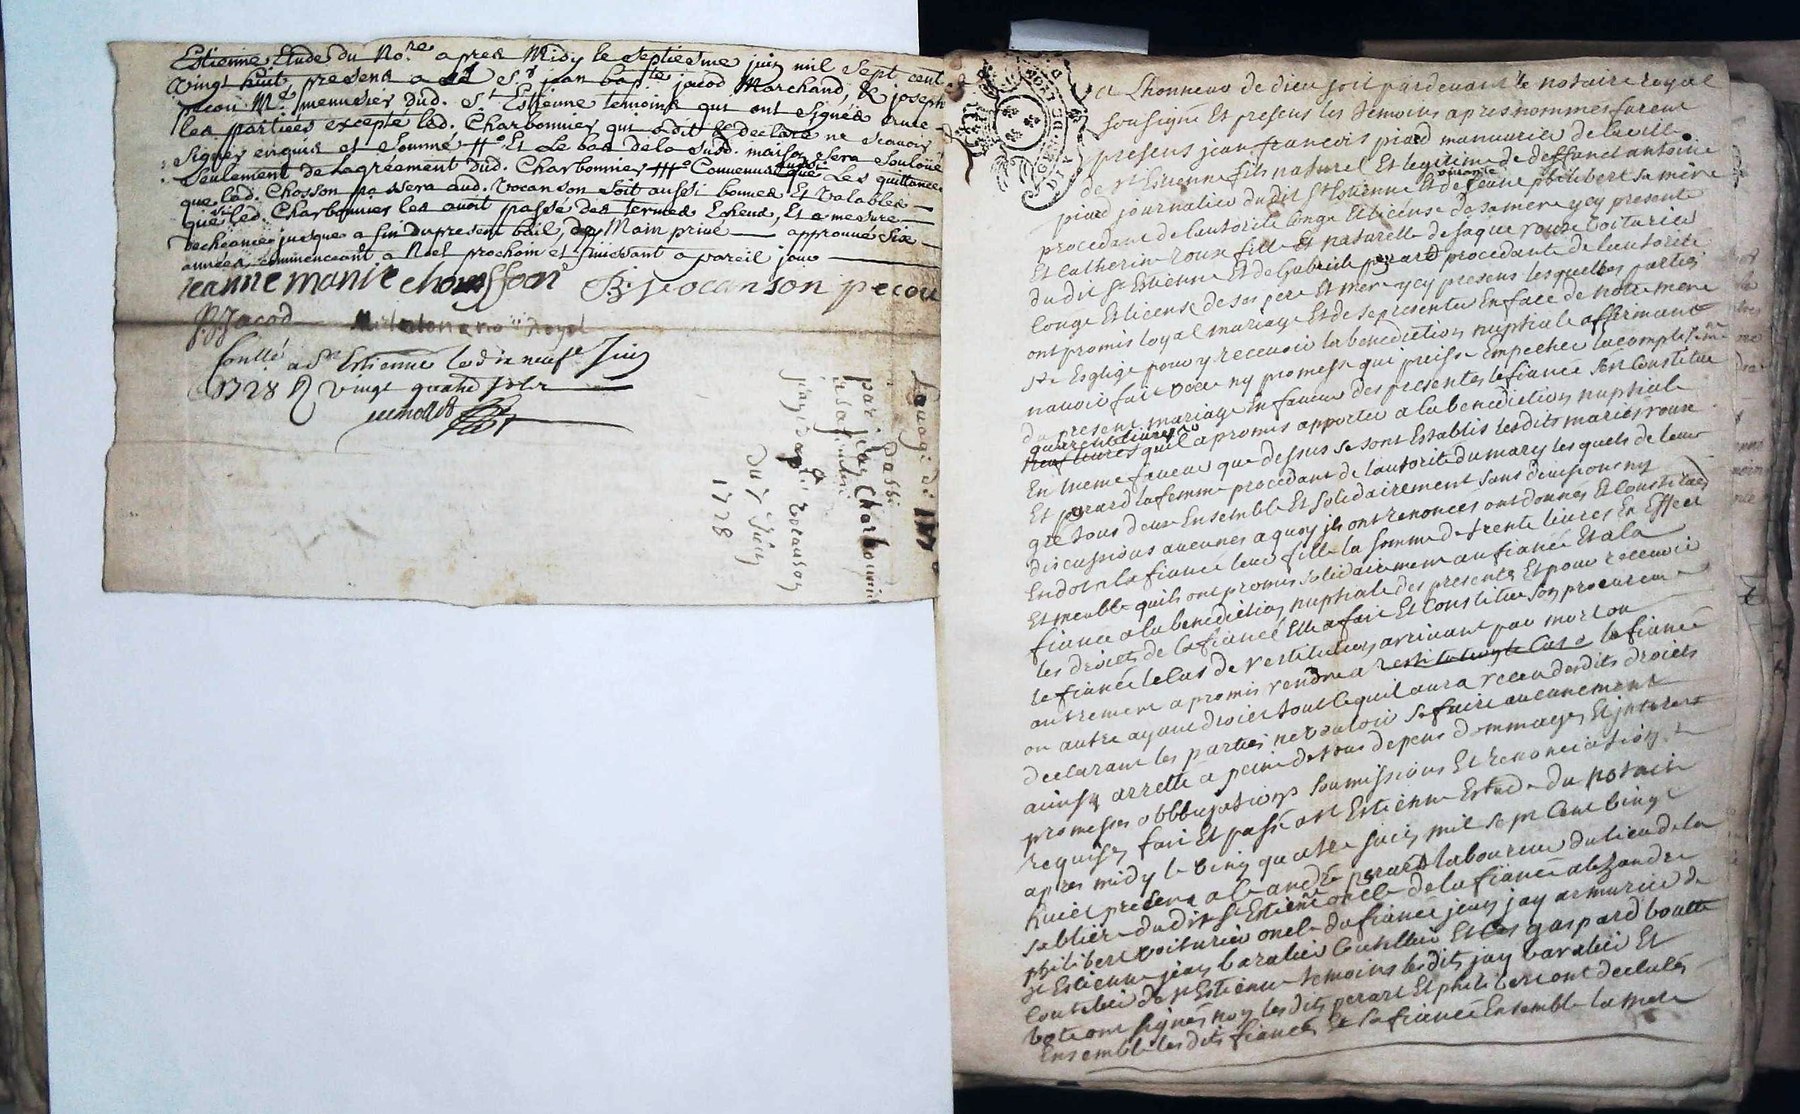 Estienne Etude du No.re apres Midy le septiesme juin mil sept cent
vingt huit presens a led. Sr. jean bap.te jacod Marchand, & joseph
pecou M.e menusier dud. St. Estienne temoins qui ont signés avec
les parties excepté led. Charbonnier qui a dit & declaré ne scavoir
signer enquis et sommé Et Le bas de la susd. maison sera soulloué
seulement de lagréement dud. Charbonnier Convenu aussi que Les quittances
que led. Chosson passera aud. vocanson soit aussi bonnes Et valables
que sy led. Charbonnier les avoit passé des termes Echeus, Et a mesure
decheance jusque a fin du present bail, de Main privé approuvé six
années commenceant a Noel prochain et finissant a pareil jour
jeanne marie chousson B. Vocanson pecou
J.B. Jacod
Conllé a St Estienne le dix neuf.e Juin
1728 R vingt quatre sols
Louage de
passé
par jean Charbonnier
Vocanson
Du 7 Juin
1728
A Lhonneur de dieu soit pardevant le notaire royal
sousigné Et presens les temoins apres nommes furent
presens jean francois piard manuvrier de la ville
de st Estienne fils naturel Et legitime de deffunct antoine
piard journalier du dit St Estienne Et de vivante jeane philibert sa mere
procedant de lautorité conge Et license de sa mere ycy presente
Et Catherine roux fille Et naturelle de jaque roux voiturier
du dit St Estienne Et de Gabriele perard procedante de lautorité
Conge Et license de ses pere Et mere ycy presens lesquelles parties
ont promis loyal mariage Et de se presenter En face de notre mere
ste Esglise pour y recevoir la benediction nuptiale affirmant
navoir fait voeu ny promesse qui puisse Empecher lacomplissem.t
du present mariage En faveur des presentes le fiancé sest Constitué
quarente livres
neuf livres quil a promis apporter a la benediction nuptiale
En meme faveur que dessus se sont Establis lesdits mariés roux
Et perard la femme procedant de lautorité du mary lesquels de leur
gré tous deux Ensemble Et solidairement sans division ny
discussions aucunes a quoy ils ont renoncés ont donnés Et Constitués
En dot a la fiancé leur fille la somme de trente livres En Effect
Et meuble quils ont promis solidairement au fiancé Et a la
fiancé a la benediction nuptiale des presentes Et pour recevoir
les droicts de la fiancé Elle a fait Et Constitué son procureur
le fiancé le Cas de restitution arrivant par mort ou
autrement a promis rendre a restitution le Cas a la fiancé
ou autre ayant droict tout ce quil aura receu desdits droicts
declarant les parties ne vouloir se faire aucunement
ainsy arretté a peine de tous depens dommages Et jnterets
promesses obbligations soumissions Et renonciation
requises fait Et passé a st Estienne Estude du notaire
apres midy le vingt quatre juin mil sept Cent vingt
huict presens a le andré perard laboureur du lieu de la
sabliere du dit St Estienne oncle de la fiancé alexandre
philibert voiturier oncle du fiancé jean jay armurier de
st Estienne jean baralier Coutellier Et Cas gaspard boutte
Coutelier de st Estienne temoins lesdits jay baralier Et
bote ont signés non lesdits perard Et philibert ont declarés
Ensemble lesdits fiancés Et la fiancé Ensemble la mere